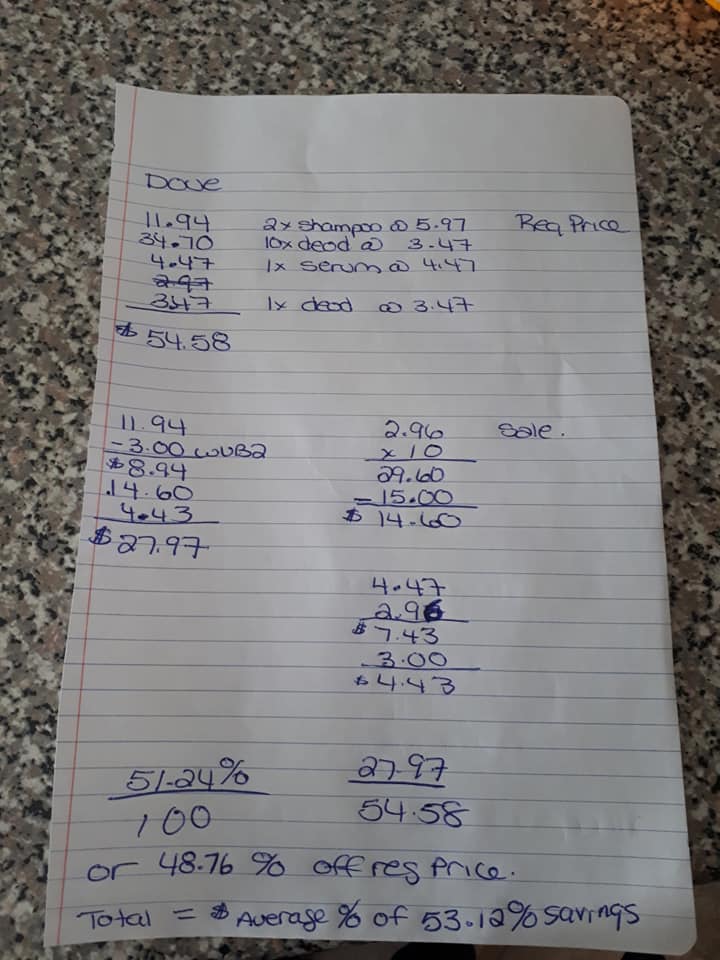 Dove
11.94 2x shampoo @ 5.97 Reg Price
34.70 10x deod @ 3.47
4.47 1x serum @ 4.47
2.97
3.47 1x deod @ 3.47
$ 54.58
11.94 2.96 Sale.
-3.00 WUB2 x 10
$8.94 29.60
14.60 - 15.00
4.43 $ 14.60
$27.97
4.47
2.96
$7.43
3.00
$4.43
51.24% 27.97
100 54.58
or 48.76 % off reg Price.
Total = $ Average % of 53.12% savings